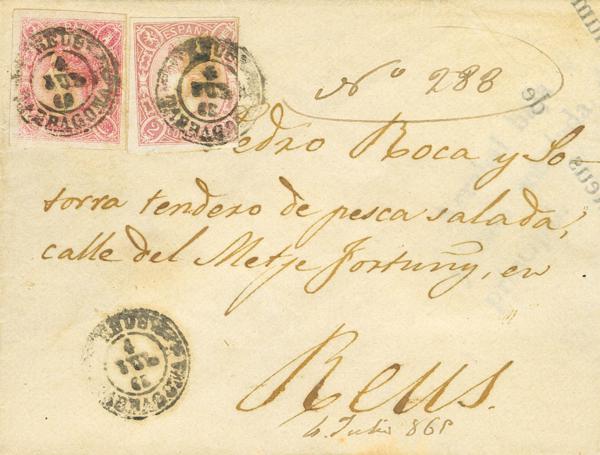 REUS
4
JUL
65
TARRAGONA
ESPAÑA
REUS
4
JUL
65
TARRAGONA
Nº 288
Pedro Roca y So-
torra tendero de pesca salada,
calle del Metje Fortuñy, en
Reus.
REUS
4
JUL
65
TARRAGONA
4. Julio 865
de